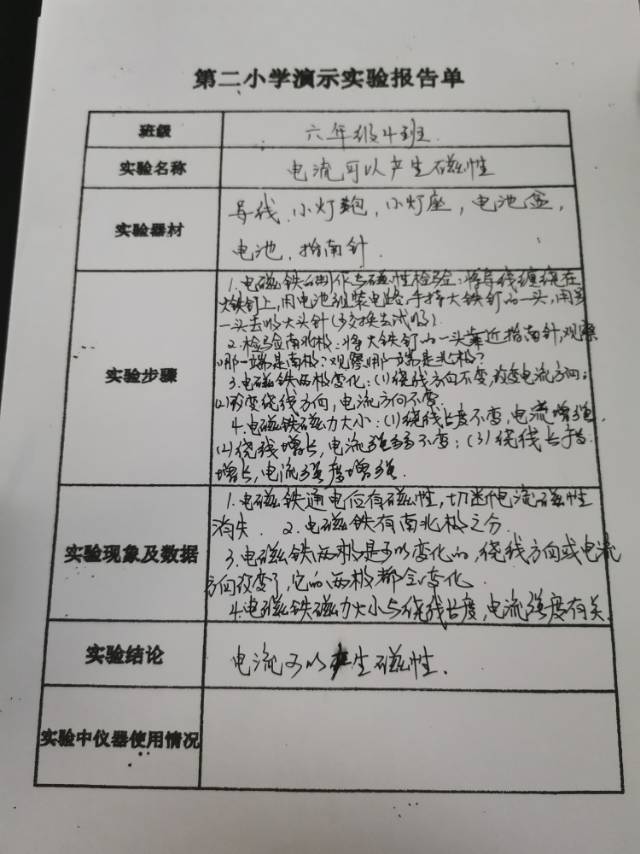 第二小学演示实验报告单
班级
六年级4班
实验名称
电流可以产生磁性
实验器材
导线、小灯炮，小灯座，电池盒，
电池、指南针.
实验步骤
1.电磁铁的制作与磁性检验：将导线缠绕在
大铁钉上，用电池组装电路，手持大铁钉的一头，用另
一头去吸大头针(交换去试吸)
2.检验南北极：将大铁钉的一头靠近指南针观察
哪一端是南极？观察哪一端是北极？
3.电磁铁两极变化：(1)绕线方向不变，改变电流方向；
(2)改变绕线方向，电流方向不变.
4.电磁铁磁力大小：(1)绕线长度不变，电流增强.
(2)绕线增长，电流强不变；(3)绕线长
增长，电流强度增强.
实验现象及数据
1.电磁铁通电后有磁性，切断电流磁性
消失. 2.电磁铁有南北极之分.
3.电磁铁两极是可以变化的，绕线方向或电流
方向改变了，它的两极都会变化.
4.电磁铁磁力大小与绕线长度，电流强度有关.
实验结论
电流可以产生磁性.
实验中仪器使用情况